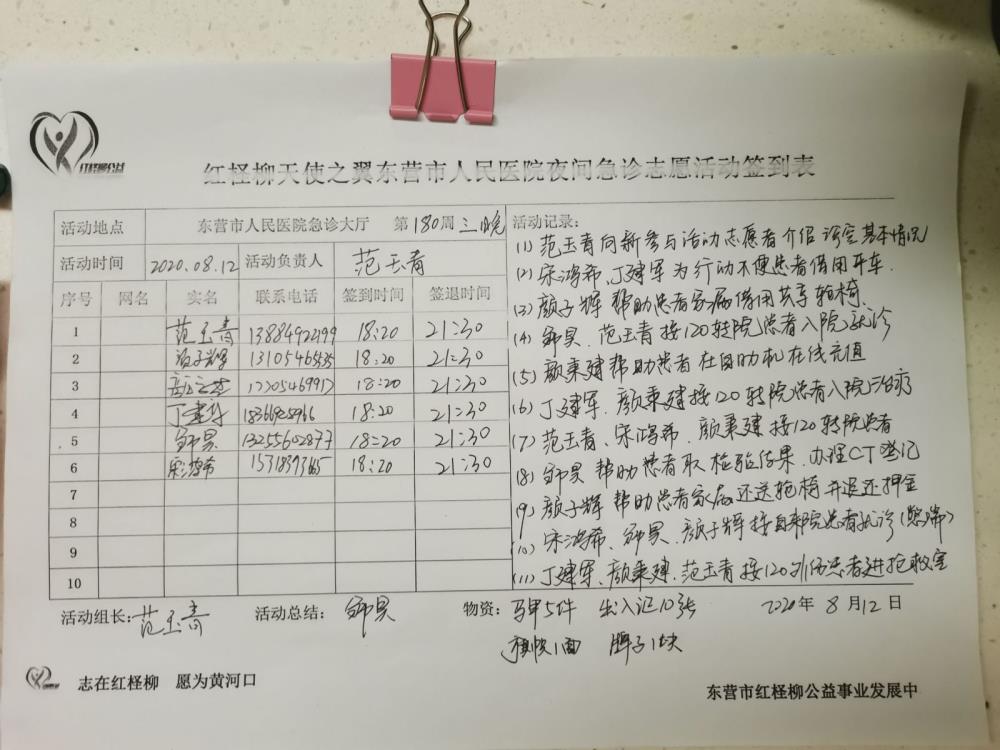 红柽柳公益
红柽柳天使之翼东营市人民医院夜间急诊志愿活动签到表
活动地点 东营市人民医院急诊大厅 第180周三晚
活动时间 2020.08.12 活动负责人 范玉青
序号 网名 实名 联系电话 签到时间 签退时间
1 范玉青 18:20 21:30
2 颜子辉 18:20 21:30
3 18:20 21:30
4 丁建军 18:20 21:30
5 郐昊 13255602877 18:20 21:30
6 宋鸿希 18:20 21:30
7
8
9
10
活动记录:
(1) 范玉青向新参与活动志愿者介绍诊室基本情况
(2) 宋鸿希、丁建军为行动不便患者借用平车.
(3) 颜子辉 帮助患者家属借用共享轮椅.
(4) 昊、范玉青接120转院患者入院就诊
(5) 颜秉建帮助患者在自助机在线充值
(6) 丁建军、颜秉建接120转院患者入院治疗
(7) 范玉青、宋鸿希、颜秉建接120转院患者
(8) 昊 帮助患者取检验结果、办理CT登记
(9) 颜子辉 帮助患者家属还送轮椅并退还押金
(10) 宋鸿希、昊、颜子辉接自来院患者就诊(
(11) 丁建军、颜秉建、范玉青接120外伤患者进抢救室
活动组长: 范玉青 活动总结: 昊 物资: 马甲5件 出入证10张 2020年8月12日
旗帜1面 牌子1块
志在红柽柳 愿为黄河口
东营市红柽柳公益事业发展中